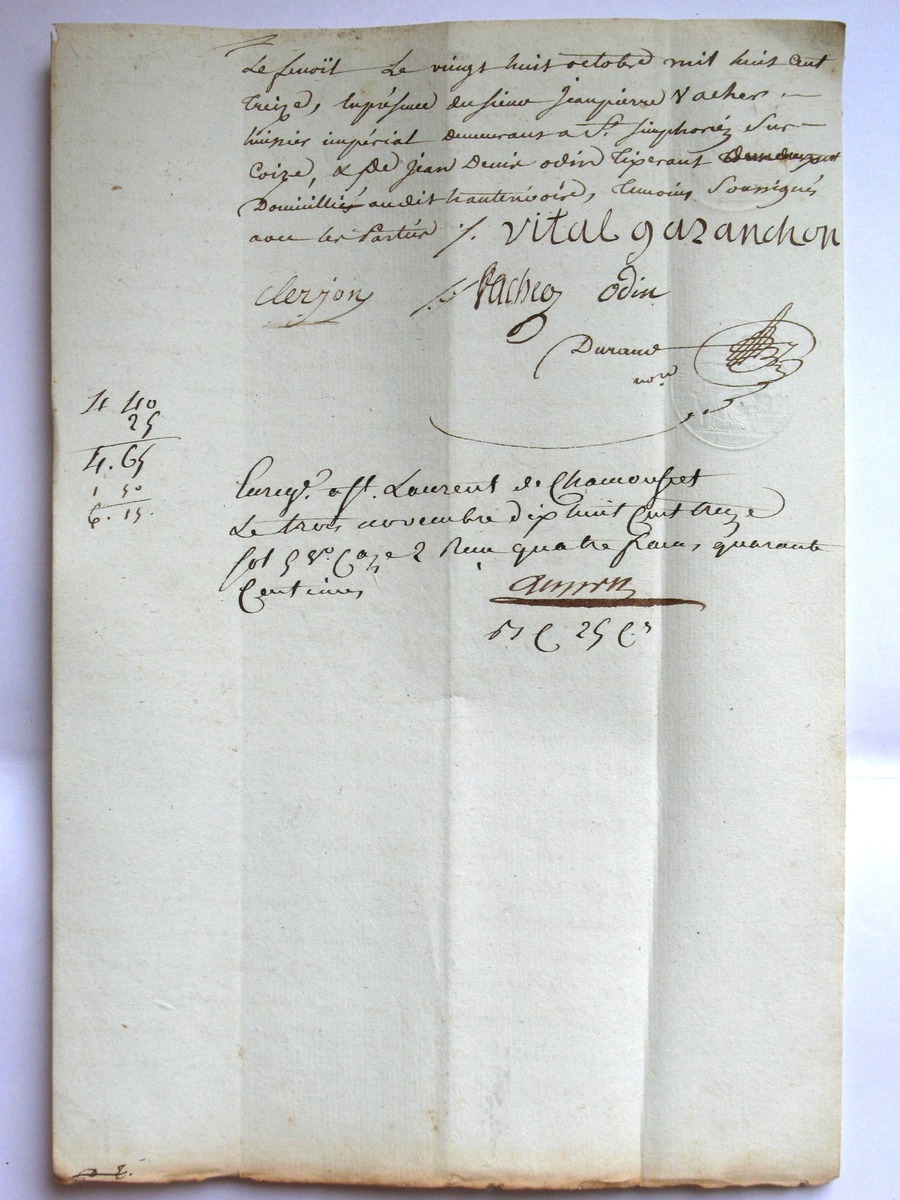 Le Benoit Le vingt huit octobre mil huit cent
treize, En présence du sieur Jeanpierre Vacher
huissier impérial demeurant a St. Simphorien Sur
Coize, & de Jean Denis odin tixerant
Domicilliés audit hauterivoire, temoins Soussignés
avec les Parties /. vital garanchon
Clerjon Vacher odin
Durand
nore
4 40
25
4. 65
1 50
6. 15.
Enregt. a St. Laurent de Chamousset
Le trois novembre dix huit Cent treize
fol 5 Vo. Caze 2 Reçu quatre francs quarante
Centimes
25 Cs